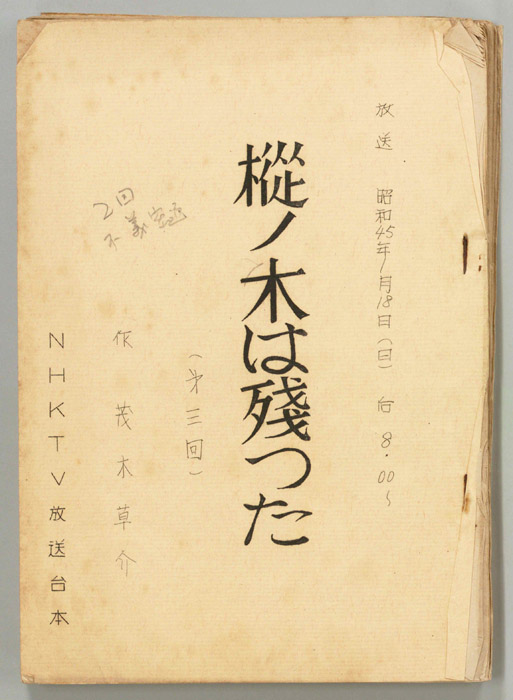 放送 昭和45年1月18日(日) 后8.00~
樅ノ木は残つた
(第三回)
作 茂木草介
2回
NHKTV放送台本